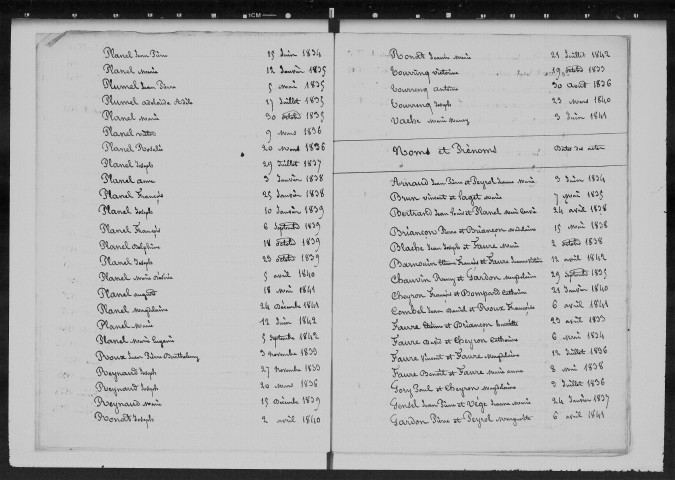 Planel Jean Pierre 15 Juin 1834
Planel Marie 12 Janvier 1835
Plumel Jean Pierre 5 Mai 1835
Plumel adelaïde 27 Juillet 1835
Planel Marie 30 octobre 1835
Planel victor 9 Mars 1836
Planel Rosalie 20 Mars 1836
Planel Joseph 29 Juillet 1837
Planel anne 3 Janvier 1838
Planel François 25 Janvier 1838
Planel Joseph 10 Janvier 1839
Planel François 6 Septembre 1839
Planel Delphine 18 octobre 1839
Planel Joseph 23 octobre 1839
Planel Marie 5 avril 1840
Planel august 18 Mai 1841
Planel Magdelaine 24 Décembre 1841
Planel Marie 12 Juin 1842
Planel Marie Eugénie 5 Septembre 1842
Roux Jean Pierre Barthelemy 3 Novembre 1833
Reynaud Joseph 27 Novembre 1833
Reynaud Joseph 20 Mars 1836
Reynaud Marie 15 Décembre 1839
Ronat Joseph 2 avril 1840
Ronat Marie 21 Juillet 1842
Tourreng victoire 19 octobre 1833
Tourreng antoine 30 août 1836
Tourreng Joseph 23 Mars 1840
Vache Marie 3 Juin 1841
Noms et Prénoms Dates des actes
Arnaud Jean Pierre et Peyrol Jeanne Marie 3 Juin 1834
Brun vincent et Marie 7 Mai 1835
Bertrand Jean Louis et Planel Marie 24 avril 1838
Briançon Pierre et Briançon Madelaine 15 Mai 1838
Blache Jean Joseph et Faure Marie 2 octobre 1838
Barnouin François et Faure 12 avril 1842
Chauvin Remy et Gardon Magdelaine 29 Septembre 1835
Cheyron François et Bompard Catherine 21 Janvier 1840
Combel Jean David et Roux Françoise 6 avril 1841
Faure Etienne et Briançon 23 avril 1833
Faure David et Cheyron Catherine 6 Mai 1834
Faure Vincent et Faure Magdelaine 12 Juillet 1836
Faure Benoît et Faure Marie anne 8 Mai 1838
Gory Paul et Cheyron Magdelaine 9 Juillet 1836
Gensel Jean Pierre et Vége Jeanne Marie 24 Janvier 1837
Gardon Pierre et Peyrol Marguerite 6 avril 1841